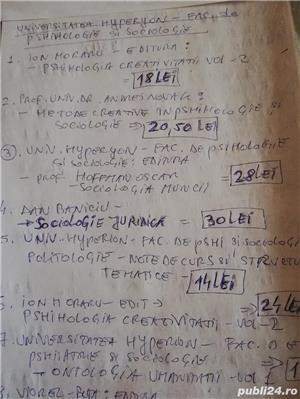 UNIVERSITATEA HYPERYON - FAC. de
PSHIHOLOGIE SI SOCIOLOGIE
1. ION MORARU - EDITURA:
- PSHIHOLOGIA CREATIVITATII VOL - 2
= 18 LEI
2. PROF. UNIV. DR. ANDREI NOVAK:
- METODE CREATIVE IN PSHIHOLOGIE SI
SOCIOLOGIE => 20,50 LEI
3. UNIV. HYPERYON - FAC. DE PSIHOLOGIE
SI SOCIOLOGIE: EDITURA
- PROF. HOFFMAN OSCAR = 28 LEI
- SOCIOLOGIA MUNCII
4. DAN BANICIU -
SOCIOLOGIE JURIDICA = 30 LEI
5. UNIV. HYPERION - FAC. DE PSHI SI SOCIOLOGI
POLITOLOGIE - NOTE DE CURS SI
TEMATICE = 14 LEI
ION MORARU - EDIT => 24 LEI
PSHIHOLOGIA CREATIVITATII - VOL - 2
7. UNIVERSITATEA HYPERION - FAC. D
SI SOCIOLOGIE
ONTOLOGIA UMANITATII - VOL
VIOREL
publi24.ro